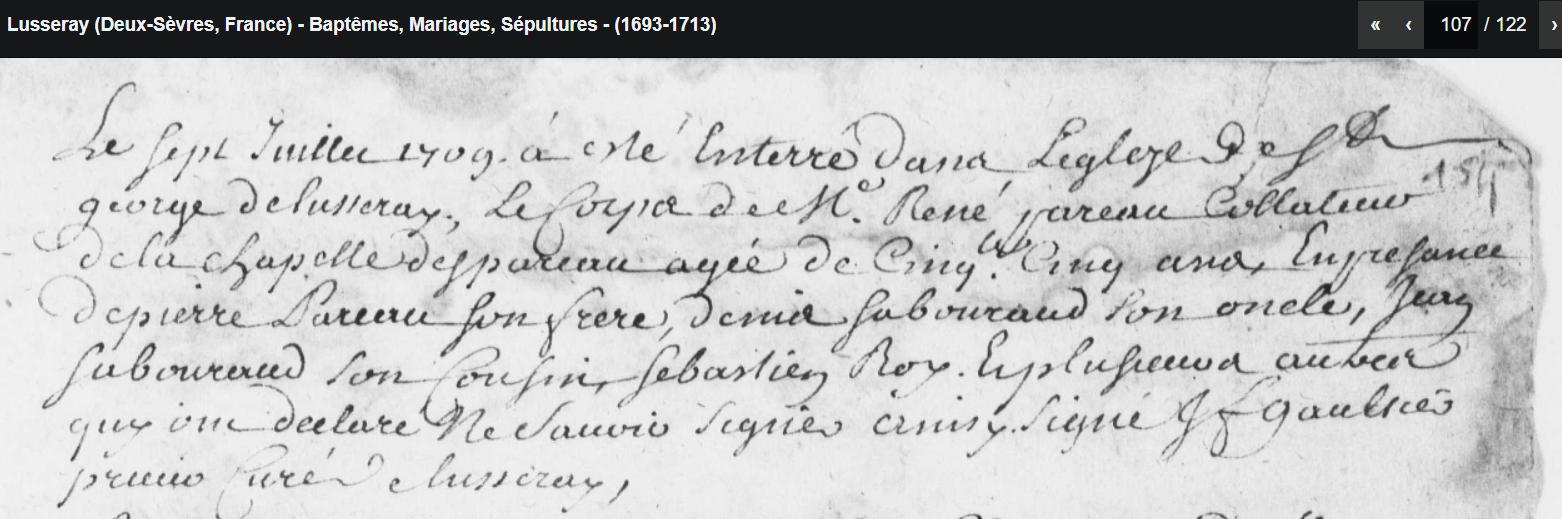 Lusseray (Deux-Sèvres, France) - Baptêmes, Mariages, Sépultures - (1693-1713)
« ‹ 107 / 122 ›
Le sept Juillet 1709. a esté Enterré dans Leglize de St
george de lusseray, Le Corps de Me. René pareau Collateur
de la chapelle des pareau agée de Cinqte. Cinq ans, En presance
de pierre Pareau son frere, denis sabouraud son oncle, Jean
sabouraud son Cousin, sebastien Roy. Et plusieurs autres
quy ont declaré Ne Sauoir signer ainsy signé J f gaultier
prieur Curé de lusseray,